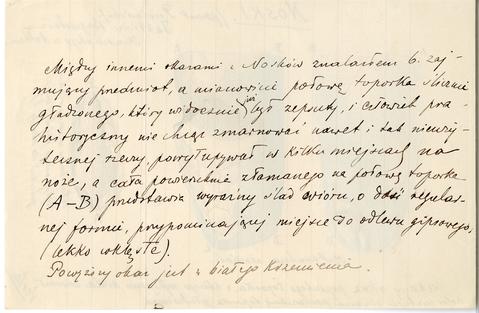 Między innemi okazami z Nosków znalazłem b. zaj-
mujący przedmiot, a mianowicie połowę toporka ślicznie
gładzonego, który widocznie już był zepsuty, i człowiek pra-
historyczny nie chcąc zmarnować nawet i tak nieuży-
tecznej rzeczy, powyłupywał w kilku miejscach na
noże, a cała powierzchnia złamanego na połowę toporka
(A–B) przedstawia wyraźny ślad wióru, o dość regular-
nej formie, przypominającej miejsce do odlewu gipsowego,
(lekko wklęsłe).
Powyższy okaz jest z białego Krzemienia.